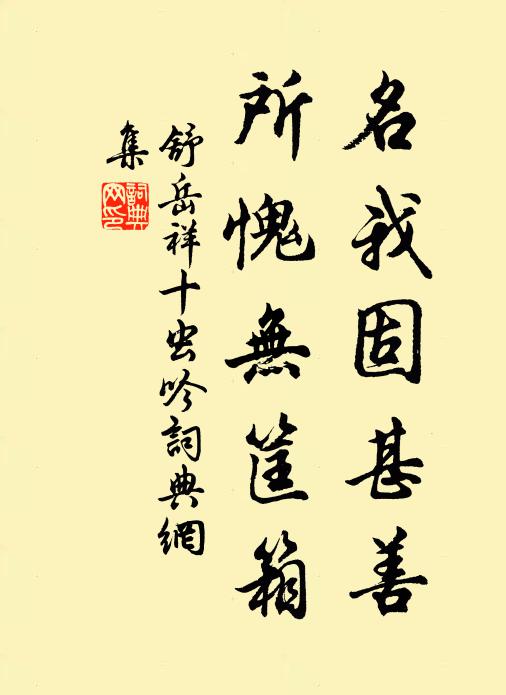 名我固甚善
所愧無筐箱
舒岳祥十虫吟詞典網
集
詞典网印